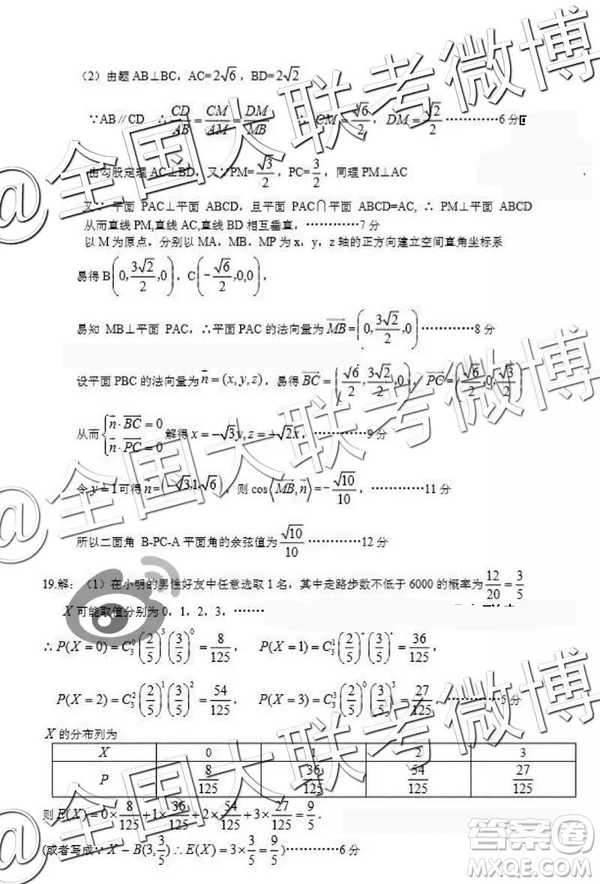 (2) 由题 AB⊥BC，AC=2√6，BD=2√2
∵AB∥CD ∴CD/AB=CM/AM=DM/MB ∴ CM=√6/2，DM=√2/2 …………6分
由勾股定理 AC⊥BD，又∵PM=√3/2，PC=3/2，同理 PM⊥AC
又∵ 平面 PAC⊥平面 ABCD，且平面 PAC∩平面 ABCD=AC, ∴ PM⊥平面 ABCD
从而直线 PM,直线 AC,直线 BD 相互垂直，…………7分
以 M 为原点，分别以 MA，MB，MP 为 x，y，z 轴的正方向建立空间直角坐标系
易得 B(0,3√2/2,0)，C(-√6/2,0,0)，
易知 MB⊥平面 PAC，∴平面 PAC 的法向量为 MB=(0,3√2/2,0)…………8分
设平面 PBC 的法向量为 n=(x,y,z)，易得 BC=(√6/2,3√2/2,0)，PC=(√6/2,0,√3/2)
从而{n·BC=0 n·PC=0 解得 x=-√3y,z=-√2x，…………9分
令 y=1可得 n=(-√3,1,√6)，则 cos⟨MB,n⟩=√10/10，…………11分
所以二面角 B-PC-A 平面角的余弦值为 √10/10 …………12分
19.解：(1)在小明的男性好友中任意选取1名，其中走路步数不低于6000的概率为12/20=3/5
X 可能取值分别为0，1，2，3，……
∴P(X=0)=C₃⁰(2/5)³(3/5)⁰=8/125， P(X=1)=C₃¹(2/5)(3/5)=36/125，
P(X=2)=C₃²(2/5)¹(3/5)²=54/125， P(X=3)=C₃³(2/5)(3/5)=27/125，…………5分
X 的分布列为
X 0 1 2 3
P 8/125 36/125 54/125 27/125
则 E(X)=0×8/125+1×36/125+2×54/125+3×27/125=9/5.
(或者写成∵X~B(3,3/5)∴E(X)=3×3/5=9/5)…………6分
@全国大联考微博
@全国大联考微博
@全国大联考微博
答案圈
MXQE.COM